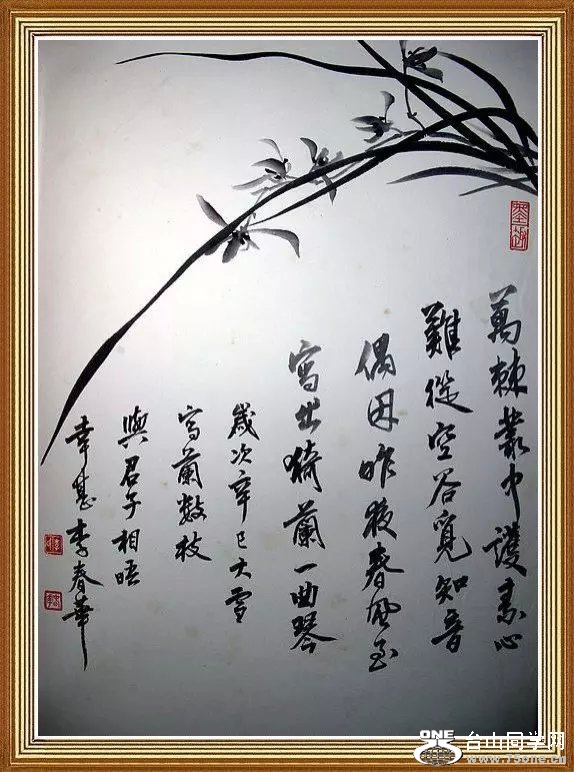 萬棘叢中護素心
難從空谷覓知音
偶因昨夜春風至
寫出猗蘭一曲琴
歲次辛巳大雪
寫蘭數枝
與君子相晤
幸甚李春華
ONE
台山同学网
www.75one.cn